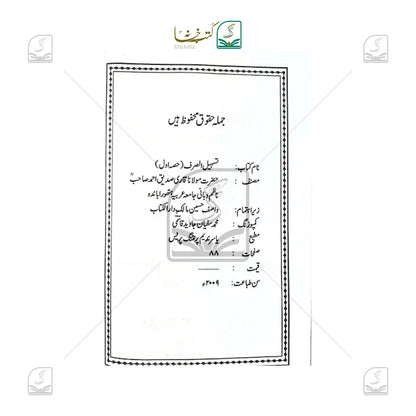 کتب خانہ
جملہ حقوق محفوظ ہیں
نام کتاب: تسہیل الصرف (حصہ اول)
مصنف: حضرت مولانا قاری صدیق احمد صاحبؒ
ناظم و بانی جامعہ عربیہ ہتھورا باندہ
زیر اہتمام: واصف حسین مالک دارالکتاب
کمپوزنگ: محمد سفیان جاوید قاسمی
مطبع: یاسر ندیم پرنٹنگ پریس
صفحات: ۸۸
قیمت: ............
سن طباعت: ۲۰۰۹ء